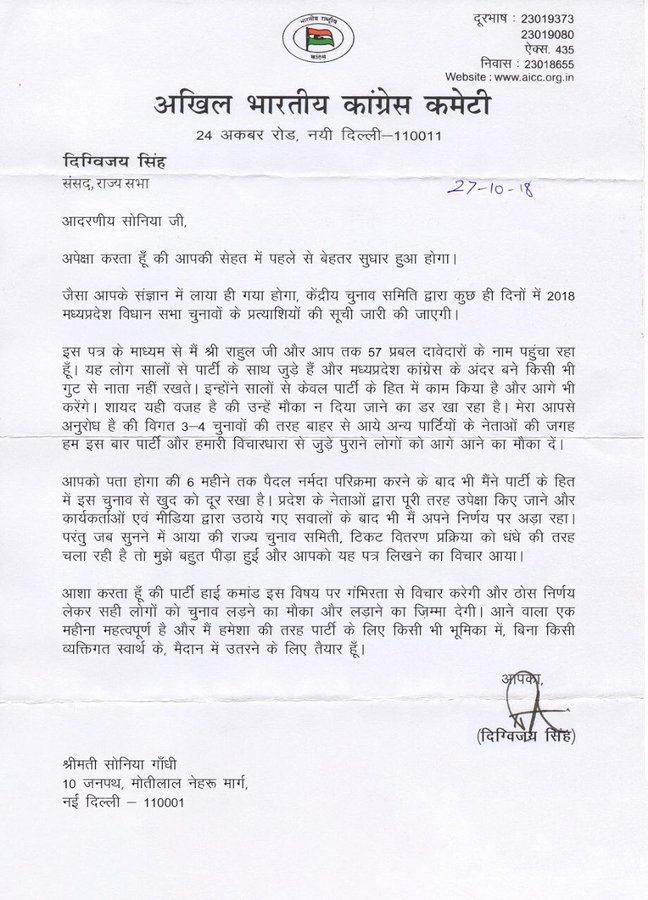 भारतीय राष्ट्रीय
कांग्रेस
दूरभाष : 23019373
23019080
ऐक्स. 435
निवास : 23018655
Website : www.aicc.org.in
अखिल भारतीय कांग्रेस कमेटी
24 अकबर रोड, नयी दिल्ली–110011
दिग्विजय सिंह
संसद, राज्य सभा
27-10-18
आदरणीय सोनिया जी,
अपेक्षा करता हूँ की आपकी सेहत में पहले से बेहतर सुधार हुआ होगा।
जैसा आपके संज्ञान में लाया ही गया होगा, केंद्रीय चुनाव समिति द्वारा कुछ ही दिनों में 2018
मध्यप्रदेश विधान सभा चुनावों के प्रत्याशियों की सूची जारी की जाएगी।
इस पत्र के माध्यम से मैं श्री राहुल जी और आप तक 57 प्रबल दावेदारों के नाम पहुंचा रहा
हूँ। यह लोग सालों से पार्टी के साथ जुड़े हैं और मध्यप्रदेश कांग्रेस के अंदर बने किसी भी
गुट से नाता नहीं रखते। इन्होंने सालों से केवल पार्टी के हित में काम किया है और आगे भी
करेंगे। शायद यही वजह है की उन्हें मौका न दिया जाने का डर खा रहा है। मेरा आपसे
अनुरोध है की विगत 3–4 चुनावों की तरह बाहर से आये अन्य पार्टियों के नेताओं की जगह
हम इस बार पार्टी और हमारी विचारधारा से जुड़े पुराने लोगों को आगे आने का मौका दें।
आपको पता होगा की 6 महीने तक पैदल नर्मदा परिक्रमा करने के बाद भी मैंने पार्टी के हित
में इस चुनाव से खुद को दूर रखा है। प्रदेश के नेताओं द्वारा पूरी तरह उपेक्षा किए जाने और
कार्यकर्ताओं एवं मीडिया द्वारा उठाये गए सवालों के बाद भी मैं अपने निर्णय पर अड़ा रहा।
परंतु जब सुनने में आया की राज्य चुनाव समिती, टिकट वितरण प्रक्रिया को धंधे की तरह
चला रही है तो मुझे बहुत पीड़ा हुई और आपको यह पत्र लिखने का विचार आया।
आशा करता हूँ की पार्टी हाई कमांड इस विषय पर गंभिरता से विचार करेगी और ठोस निर्णय
लेकर सही लोगों को चुनाव लड़ने का मौका और लड़ाने का ज़िम्मा देगी। आने वाला एक
महीना महत्वपूर्ण है और मैं हमेशा की तरह पार्टी के लिए किसी भी भूमिका में, बिना किसी
व्यक्तिगत स्वार्थ के, मैदान में उतरने के लिए तैयार हूँ।
आपका,
(दिग्विजय सिंह)
श्रीमती सोनिया गाँधी
10 जनपथ, मोतीलाल नेहरू मार्ग,
नई दिल्ली – 110001